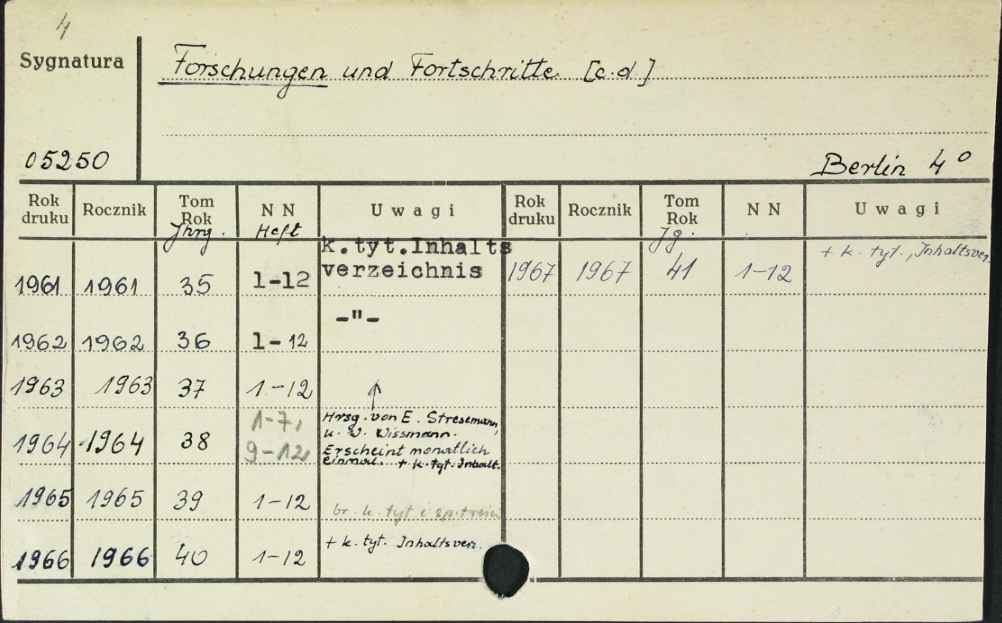 4
Sygnatura
Forschungen und Fortschritte [c.d]
05250
Berlin 4°
Rok druku Rocznik Tom Rok Jhrg. NN Heft Uwagi Rok druku Rocznik Tom Rok Jg. NN Uwagi
1961 1961 35 1-12 k.tyt.Inhalts
verzeichnis
1967 1967 41 1-12 + k. tyt., Inhaltsver.
1962 1962 36 1-12 -"-
1963 1963 37 1-12 ↑
1964 1964 38 1-7,
9-12,
Hrsg. von E. Stresemann,
u. W. Wissmann.
Erscheint monatlich
einmal. + k. tyt. Inhalt.
1965 1965 39 1-12 br. k. tyt i sp. treści
1966 1966 40 1-12 + k. tyt. Inhaltsver.